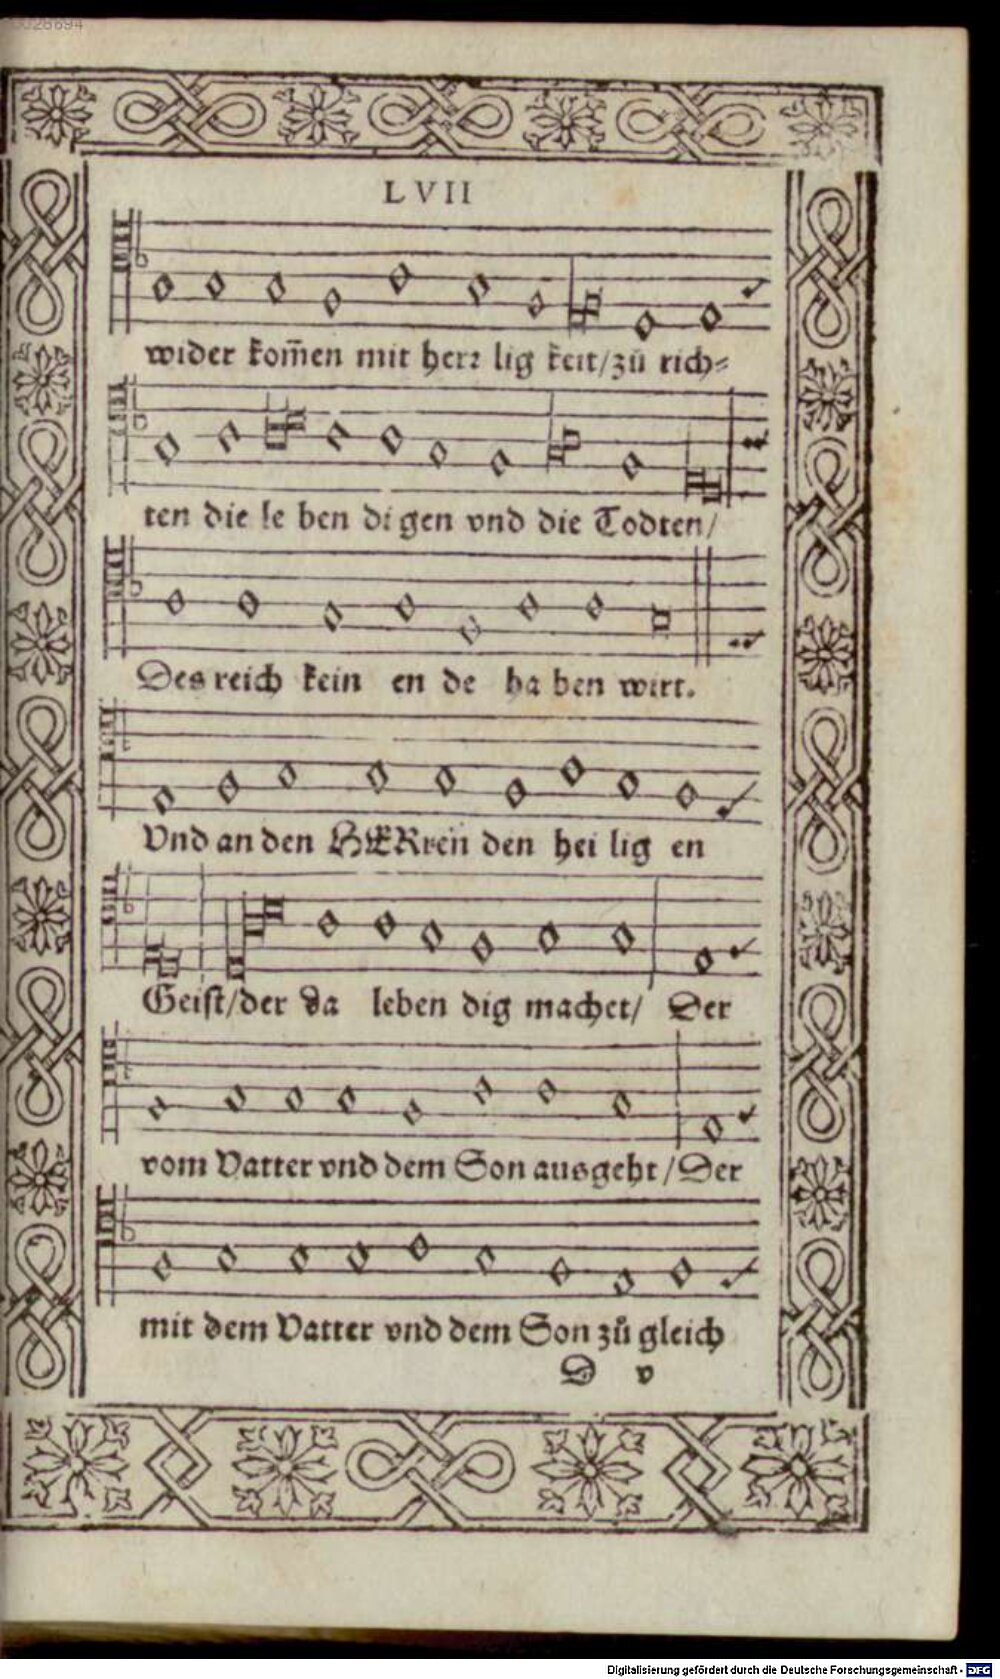 0026694
LVII
wider kom̃en mit herꝛ lig keit/zů rich⸗
ten die le ben di gen vnd die Todten/
Des reich kein en de ha ben wirt.
Vnd an den HERren den hei lig en
Geist/der da leben dig machet/ Der
vom Vatter vnd dem Son ausgeht/Der
mit dem Vatter vnd dem Son zů gleich
D v
Digitalisierung gefördert durch die Deutsche Forschungsgemeinschaft - DFG